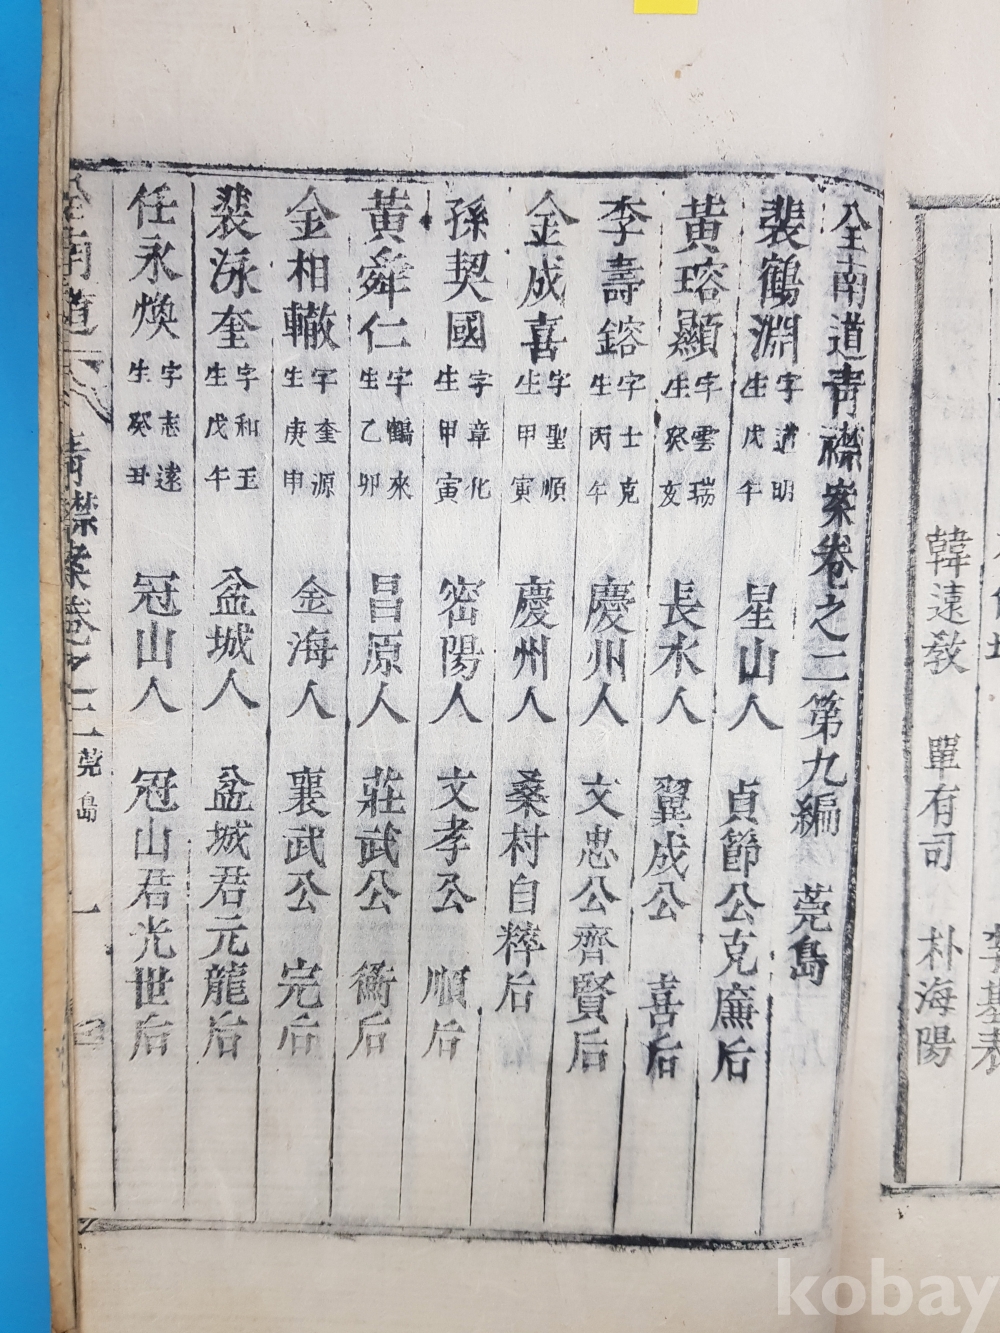 韓遠敎 單有司 朴海陽
全南道靑襟案卷之二第九編 莞島
裴鶴淵 字道明 生戊午 星山人 貞節公克廉后
黃瑢顯 字雲瑞 生癸亥 長水人 翼成公 喜后
李壽鎔 字士克 生丙午 慶州人 文忠公齊賢后
金成喜 字聖順 生甲寅 慶州人 桑村自粹后
孫契國 字章化 生甲寅 密陽人 文孝公 順后
黃舜仁 字鶴來 生乙卯 昌原人 莊武公 衡后
金相轍 字奎源 生庚申 金海人 襄武公 完后
裴泳奎 字和玉 生戊午 盆城人 盆城君元龍后
任永煥 字志遠 生癸丑 冠山人 冠山君光世后
全南道 靑襟案卷之二 莞島 一
kobay